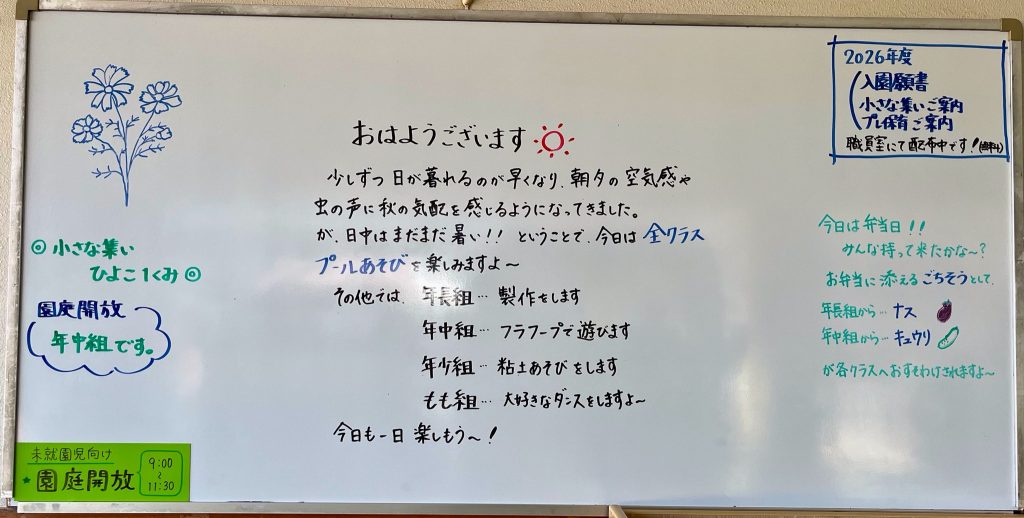 おはようございます
少しずつ日が暮れるのが早くなり、朝夕の空気感や
虫の声に秋の気配を感じるようになってきました。
が、日中はまだまだ暑い!! ということで、今日は全クラス
プールあそびを楽しみますよ～
その他では、年長組… 製作をします
年中組… フラフープで遊びます
年少組… 粘土あそびをします
もも組… 大好きなダンスをしますよ～
今日も一日楽しもう～!
◎小さな集い
ひよこ1くみ◎
園庭開放
年中組です。
未就園児向け
★園庭開放
9:00
～
11:30
2026年度
入園願書
小さな集いご案内
プレ保育ご案内
職員室にて配布中です!(無料)
今日は弁当日!!
みんな持って来たかな～?
お弁当に添えるごちそうとして、
年長組から… ナス
年中組から… キュウリ
が各クラスへおすそわけされますよ～